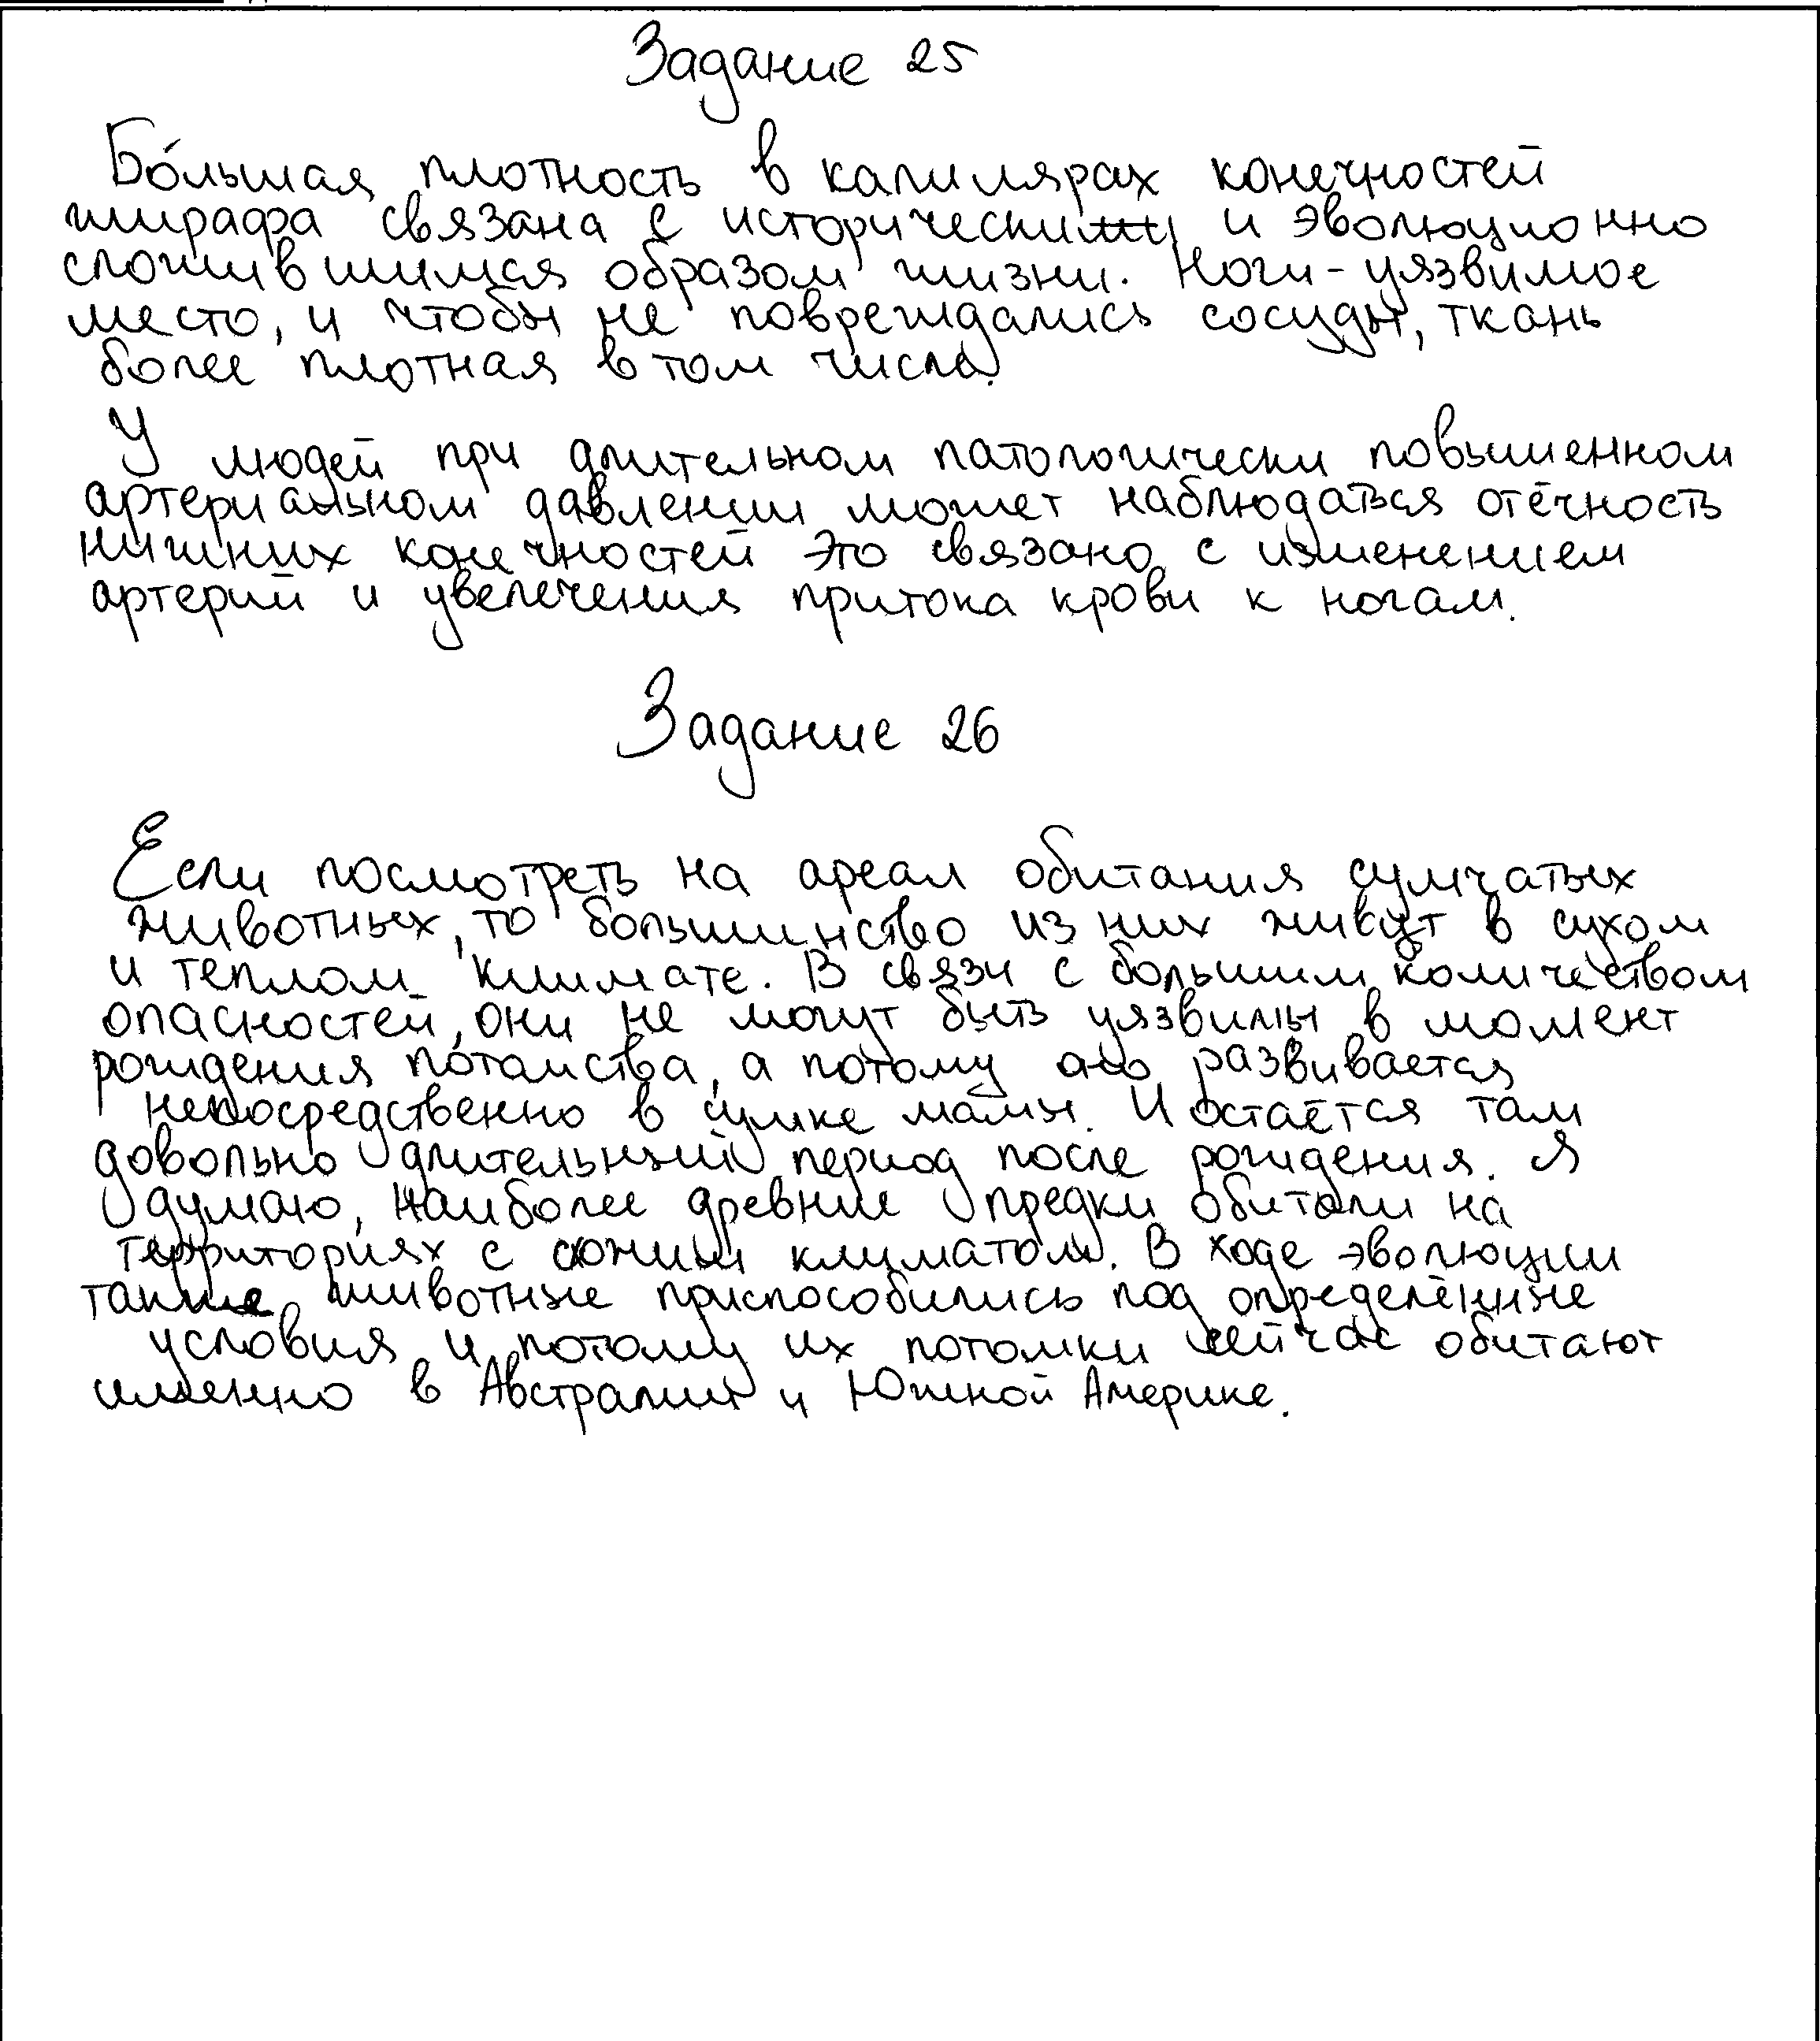 Задание 25
Бо́льшая плотность в капилярах конечностей
жирафа связана с исторически и эволюционно
сложившимся образом жизни. Ноги - уязвимое
место, и чтобы не повреждались сосуды, ткань
более плотная в том числе.
У людей при длительном патологически повышенном
артериальном давлении может наблюдаться отёчность
нижних конечностей Это связано с изменением
артерий и увелечения притока крови к ногам.
Задание 26
Если посмотреть на ареал обитания сумчатых
животных, то большинство из них живут в сухом
и теплом климате. В связи с большим количеством
опасностей, они не могут быть уязвимы в момент
рождения потомства, а потому оно развивается
непосредственно в сумке мамы. И остаётся там
довольно длительный период после рождения. Я
думаю, наиболее древние предки обитали на
территориях с схожим климатом. В ходе эволюции
такие животные приспособились под определённые
условия и потому их потомки сейчас обитают
именно в Австралии и Южной Америке.